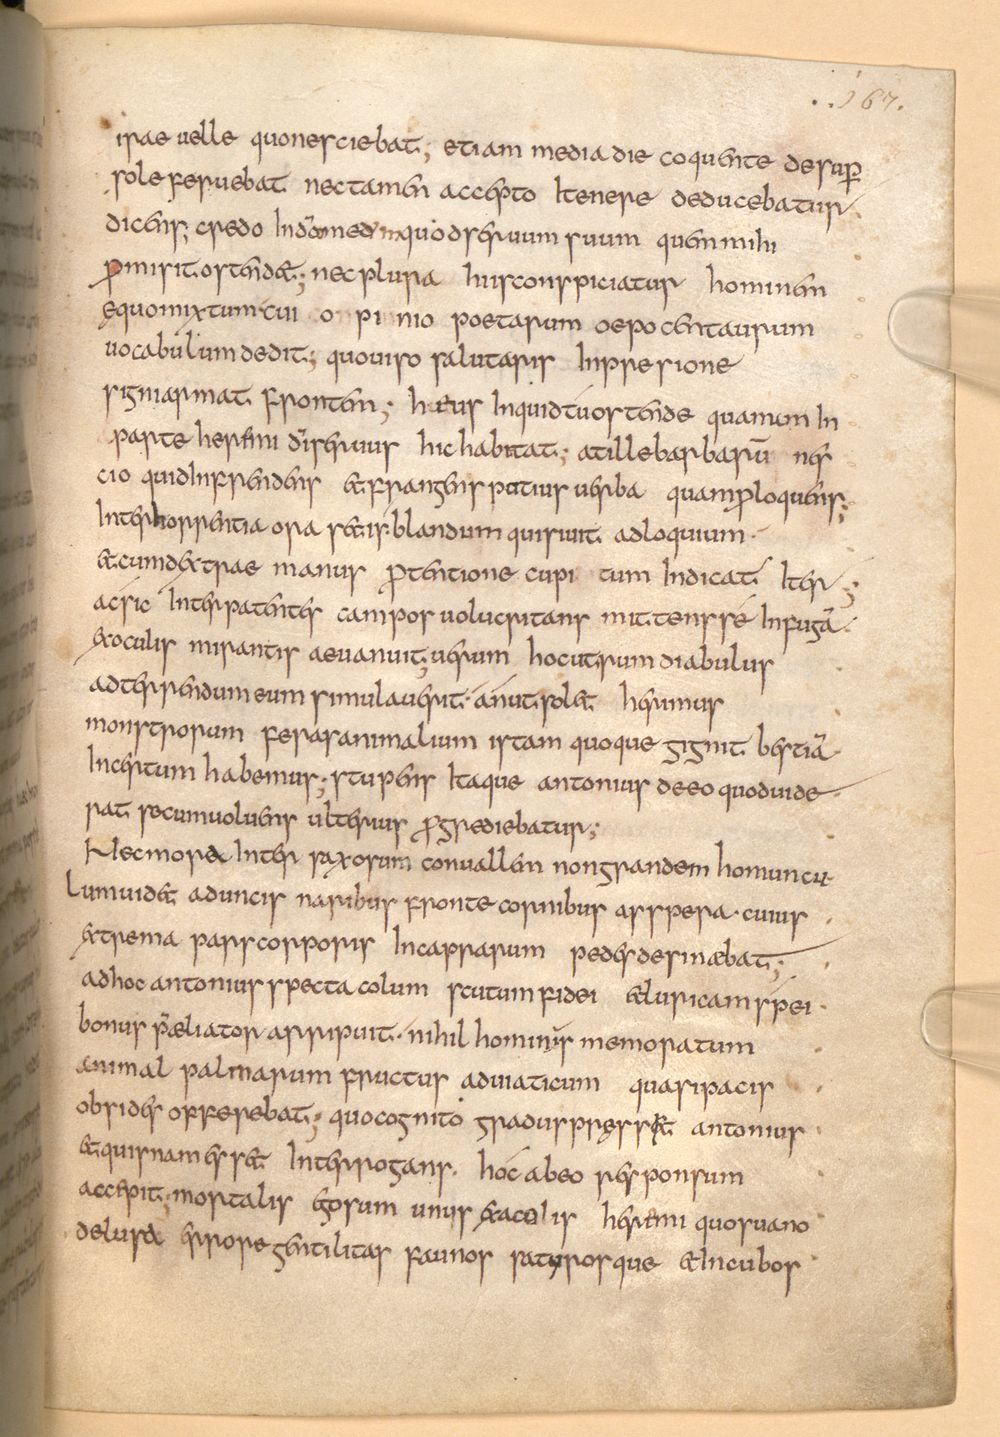 167.
irae velle quo nesciebat; etiam media die coquente desup
sole fervebat nec tamen accepto Itenere deducebatur
dicens; credo In dō meo quod servum suum quem mihi
pmisit ostendet; nec plura his conspiciatur hominem
equo mixtum cui opinio poetarum oepocentaurum
vocabulum dedit; quo viso salutaris Inpresione
signi armat frontem; heus Inquid tu ostende quanam In
parte heremi dī servus hic habitat; at ille barbarū nes
cio quid Infrendens et frangens potius verba quam ploquens;
Inter horrentia ora setis. blandum quisivit adloquium.
et cum dextrae manus ptentione cupitum Indicat Iter;
ac sic Inter patentes campos volucritans mittens sé In fugā.
ex oculis mirantis aevanuit; verum hoc utrum diabulus
ad terrendum eum simulaverit. an ut solet herimus
monstrorum ferax animalium istam quoque gignit bestiā.
Incertum habemus; stupens Itaque antonius de eo quod vide
rat secum volvens ulterius pgrediebatur;
Nec mora Inter saxosam convallem non grandem homuncu
lum videt aduncis naribus fronte cornibus asspera. cuius
extrema pars corporis In caprarum pedes desinæbat;
ad hoc antonius spectacolum scutum fidei et luricam spei.
bonus pæliator arripuit. nihil hominus memoratum
animal palmarum fructus ad viaticum quasi pacis
obsides offerebat; quo cognito gradus pressit antonius
et quisnam esset Interrogans. hoc ab eo responsum
accepit; mortalis ego sum unus ex acolis heremi quos vano
delusa errore gentilitas faunos satyrosque et Incubos